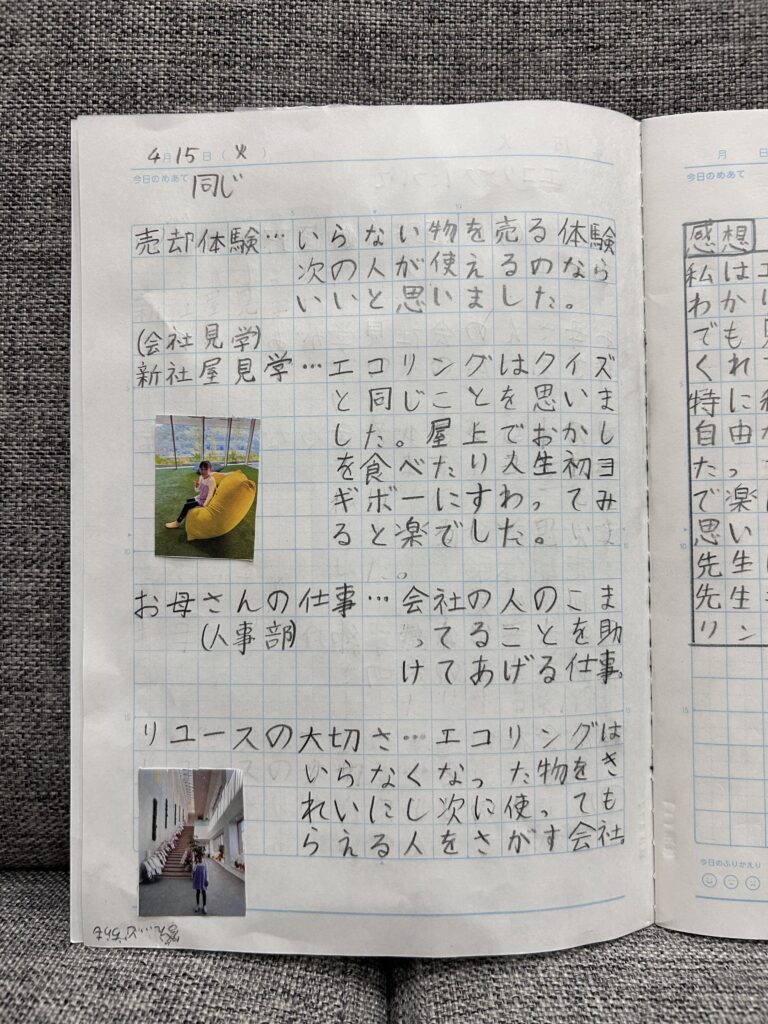 4月15日(火)
今日のめあて
同じ
売却体験…いらない物を売る体験
次の人が使えるのなら
いいと思いました。
(会社見学)
新社屋見学…エコリングはクイズ
と同じことを思いま
した。屋上でおかし
を食べたり人生初ヨ
ギボーにすわってみ
ると楽でした。
お母さんの仕事…会社の人のこま
(人事部)
ってることを助
けてあげる仕事。
リユースの大切さ…エコリングは
いらなくなった物をき
れいにし次に使っても
らえる人をさがす会社。
月 日
今日のめあて
感想
私はエ
わかり
でも
くれ
特に
自由
たっ
で楽
思い
先生
先生
リン
今日のふりかえり